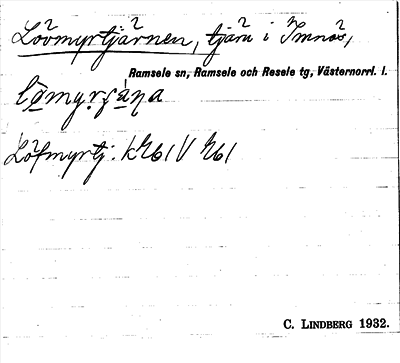 Lövmyrtjärnen, tjärn i Imnäs,
Ramsele sn, Ramsele och Resele tg, Västernorrl. l.
Löfmyrtj. k R61 V R61
C. LINDBERG 1932.